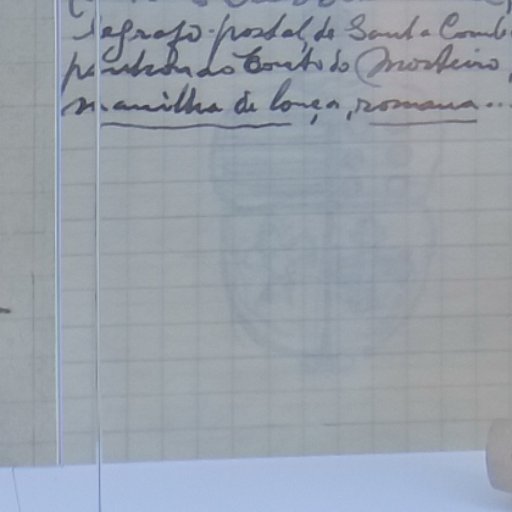 telegrafo-postal de Santa Comb
pertence ao Couto do Mosteiro,
manilha de louça, romana...